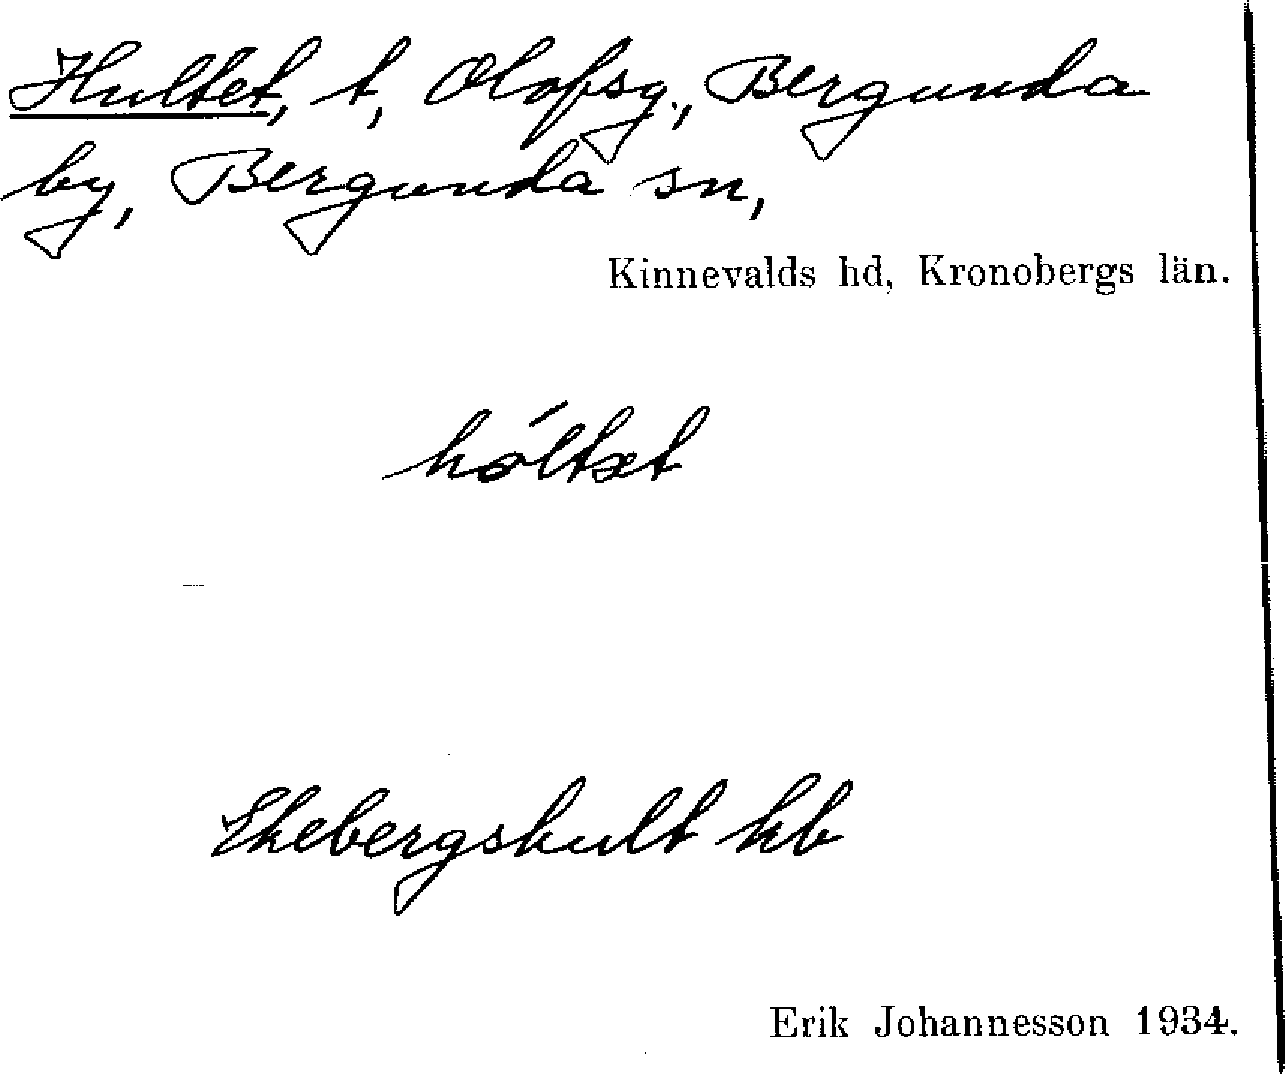 Hultet, t, Olofsg., Bergunda
by, Bergunda sn,
Kinnevalds hd, Kronobergs län.
hóltət
Ekebergshult kb
Erik Johannesson 1934.